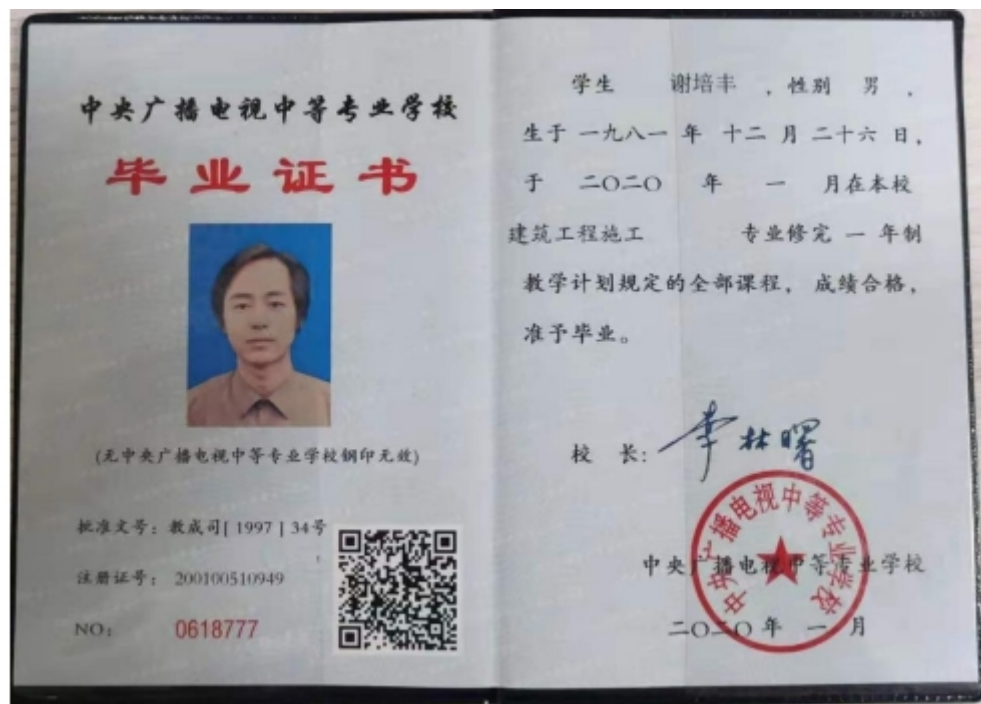 中央广播电视中等专业学校
毕业证书
(无中央广播电视中等专业学校钢印无效)
批准文号：教成司[ 1997 ] 34号
注册证号： 200100510949
NO: 0618777
学生 谢培丰 ，性别 男 ，
生于 一九八一 年 十二 月 二十六 日，
于 二〇二〇 年 一 月在本校
建筑工程施工 专业修完 一 年制
教学计划规定的全部课程， 成绩合格，
准予毕业。
校 长: 李林曙
中央广播电视中等专业学校
中央广播电视中等专业学校
二〇二〇 年 一 月